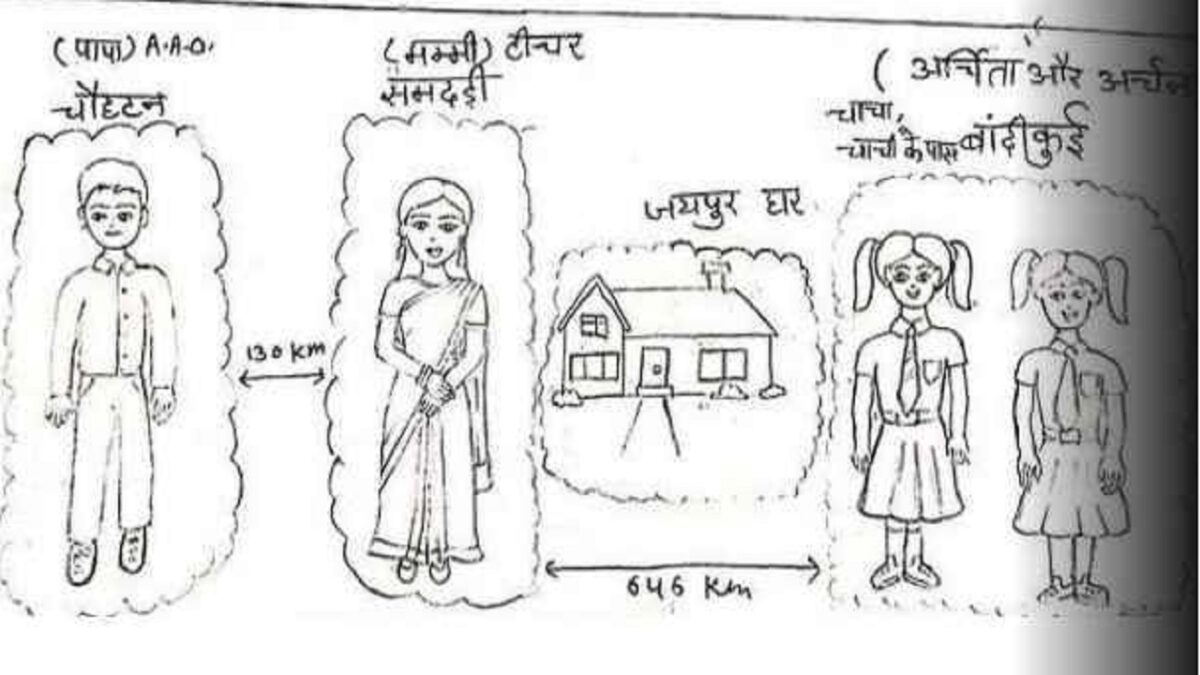 (पापा) A.A.O.
चौहटन
(मम्मी) टीचर
समदड़ी
(अर्चिता और अर्चना
चाचा,
चाची के पास बांदीकुई
जयपुर घर
130 Km
646 Km